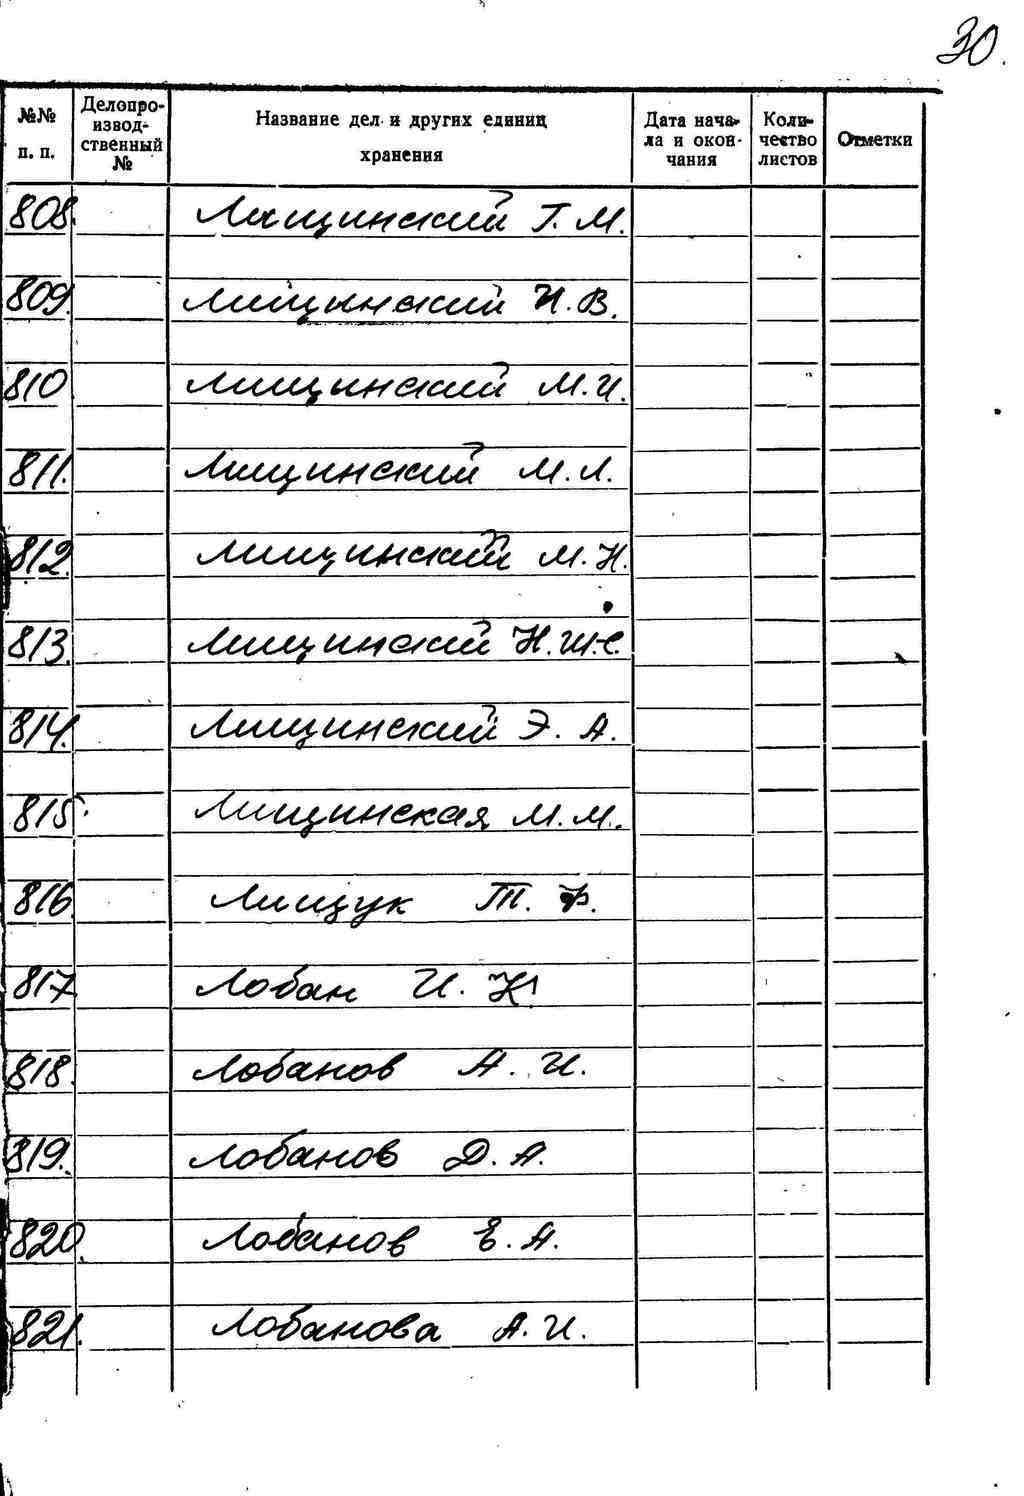 30.
№№ п. п. Делопроизводственный № Название дел и других единиц хранения Дата начала и окончания Количество листов Отметки
808. Лищинский Г. М.
809. Лищинский И. В.
810 Лищинский М. И.
811. Лищинский М. Л.
812. Лищинский М. Н.
813. Лищинский Н. Ш-С.
814. Лищинский Э. А.
815. Лищинская М. М.
816. Лищук Т. Ф.
817 Лобан И. К
818. Лобанов А. И.
819. Лобанов Д. А.
820. Лобанов Е. А.
821. Лобанова А. И.